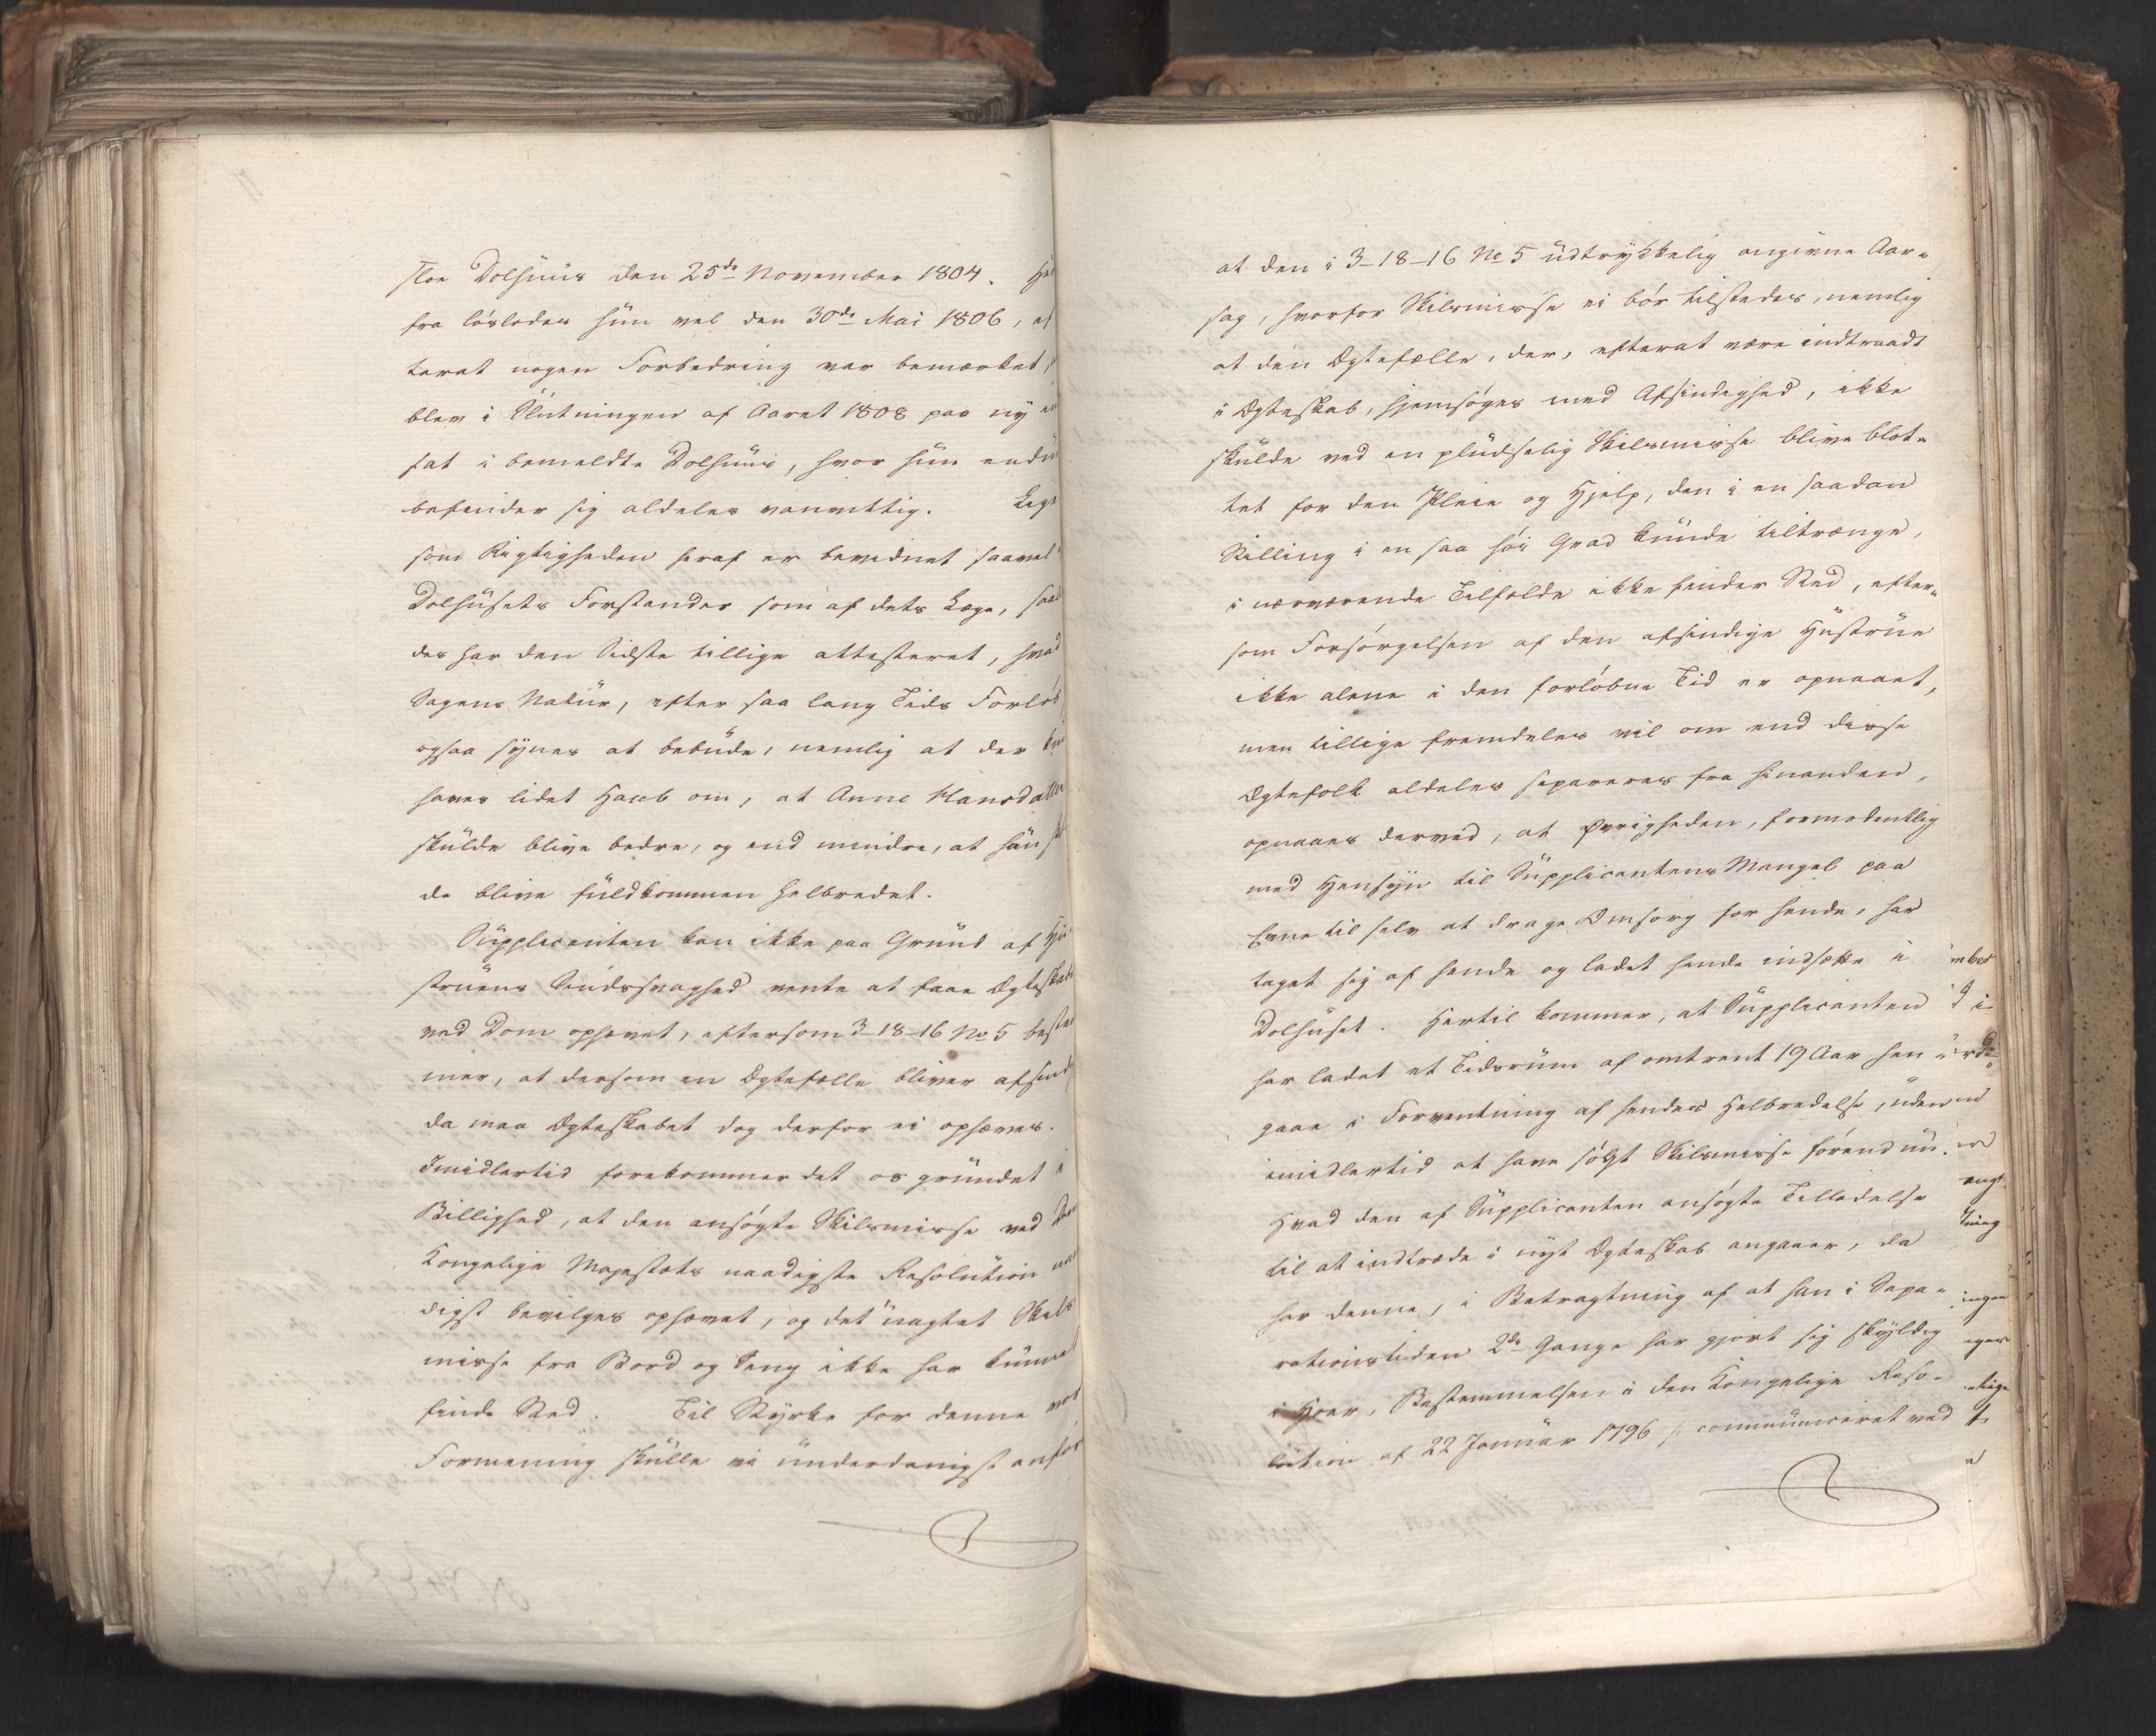 sloe Dolhuus den 25de November 1804. Her
fra lösladtes hun vel den 30de Mai 1806, ef
terat nogen Forbedring var bemærket,
blev i Slutningen af Aaret 1808 paa ny
sat i bemeldte Dolhuus, hvor hun endnu
befinder sig aldeles vanvittig. Lige
som Rigtigheden heraf er bevidnet saavel
Dolhusets Forstander som af dets Læge, saale
des har den Sidste tillige attesteret, hvad
Sagens Natur, efter saa lang Tids Forlöb
ogsaa synes at bebude, nemlig at der kun
haves lidet Haab om, at Anne Hansdatter
skulde blive bedre, og end mindre, at hun
de blive fuldkommen helbredet.
Supplicanten kan ikke paa Grund af Hu
struens Sindssvaghed vente at faae Ægteskabet
ved Dom ophævet, eftersom 3-18-16 No 5 bestem
mer, at dersom en Ægtefælle bliver afsindig
da maa Ægteskabet dog derfor ei ophæves.
Imidlertid forekommer det os grundet i
Billighed, at den ansögte Skilsmisse ved Deres
Kongelige Majestæts naadigste Resolution naa
digst bevilges ophævet, og det uagtet Skils
misse fra Bord og Seng ikke har kunnet
finde Sted. Til Styrke for denne vor
Formening skulle vi underdanigst anför
at den i 3-18-16 No 5 udtrykkelig angivne Aar-
sag, hvorfor Skilsmisse ei bör tilstedes, nemlig
at den Ægtefælle, der, efterat være indtraadt
i Ægteskab, hjemsöges med Afsindighed, ikke
skulde ved en pludselig Skilsmisse blive blot-
tet for den Pleie og Hjelp, den i en saadan
Stilling i en saa höi Grad kunde tiltrænge,
i nærværende Tilfælde ikke finder Sted, efter-
som Forsörgelsen af den afsindige Hustrue
ikke alene i den forlöbne Tid er opnaaet,
men tillige fremdeles vil om end disse
Ægtefolk aldeles separeres fra hinanden,
opnaaes derved, at Øvrigheden, formodentlig
med Hensyn til Supplicantens Mangel paa
Evne til selv at drage Omsorg for hende, har
taget sig af hende og ladet hende indsætte i
Dolhuset. Hertil kommer, at Supplicanten
har ladet et Tidsrum af omtrent 19 Aar hen
gaae i Forventning af hendes Helbredelse, uden
imidlertid at have sögt Skilsmisse förend nu.
Hvad den af Supplicanten ansögte Tilladelse
til at indtræde i nyt Ægteskab angaaer, da
har denne, i Betragtning af at han i Sepa-
rationstiden 2de Gange har gjort sig skyldig
i Hoer, Bestemmelsen i den Kongelige Reso-
lution af 22 Januar 1796 /: communiceret ved